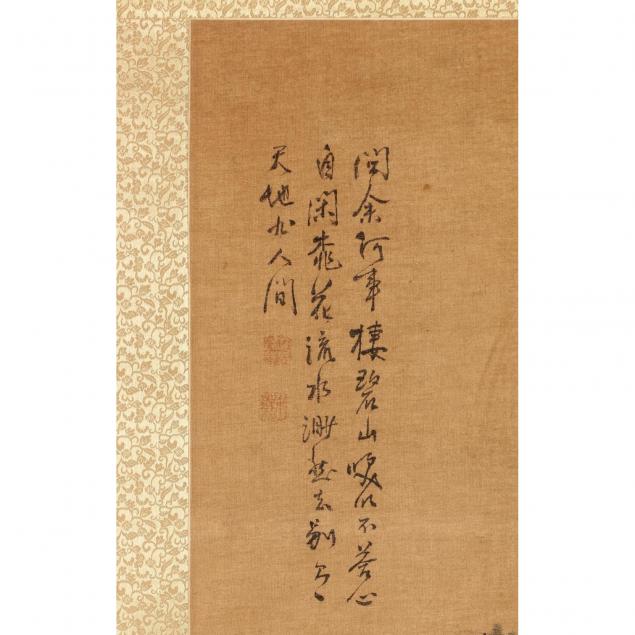 問余何事棲碧山咲以不答心
自閑桃花流水渺然去別有
天地非人間